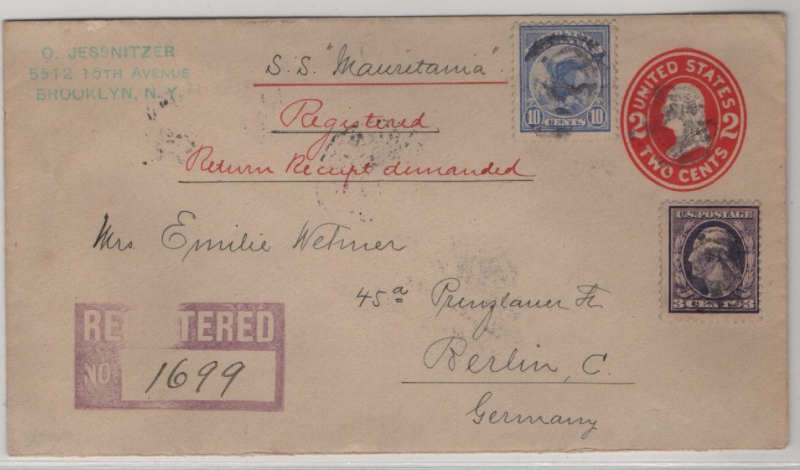 O. JESSNITZER
5512 15TH AVENUE
BROOKLYN, N.Y.
S.S. "Mauretania"
Registered
Return Receipt demanded
10 CENTS 10
UNITED STATES
2 2
TWO CENTS
Mrs. Emilie Wehner
45a Prenzlauer Str
Berlin, C.
Germany
U.S. POSTAGE
3 CENTS 3
REGISTERED
NO. 1699